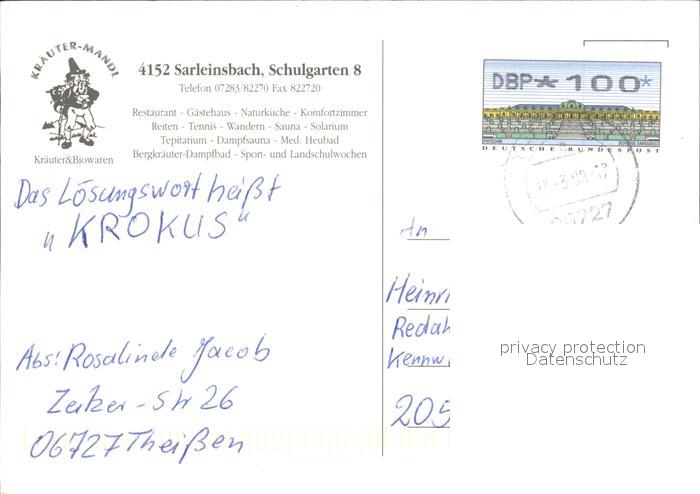 KRÄUTER-MANDL
Kräuter&Biowaren
4152 Sarleinsbach, Schulgarten 8
Telefon 07283/82270 Fax 822720
Restaurant - Gästehaus - Naturküche - Komfortzimmer
Reiten - Tennis - Wandern - Sauna - Solarium
Tepitarium - Dampfsauna - Med. Heubad
Bergkräuter-Dampfbad - Sport- und Landschulwochen
DBP * 100 *
DEUTSCHE BUNDESPOST
06727
Das Lösungswort heißt
„KROKUS"
An
Heinri
Redak
Kennw
205
privacy protection
Datenschutz
Abs: Rosalinde Jacob
Zeitzer - Str 26
06727 Theißen